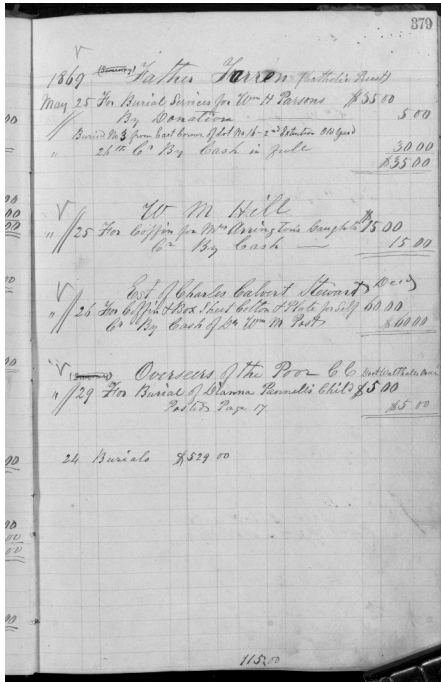 379
1869 Father Farren (Catholic Priest)
May 25 For Burial Services for Wm H Parsons $35.00
By Donation 5.00
Buried No 3 from East Corner of Lot No 16 - 2nd Extention Old yard
" 26th Cr By Cash in full 30.00
$35.00
W M Hill
" 25 For Coffin for Mrs Arrington's Daughter $15.00
Cr By Cash 15.00
Est of Charles Calvert Stewart Decd
" 26 For Coffin & Box Sheet Cotton & Plate for Self 60.00
Cr By Cash of Dr Wm M Post $60.00
Overseers of the Poor C C
" 29 For Burial of Dianna Pannell's Child $5.00
Posted Page 17 $5.00
24 Burials $529.00
115.00